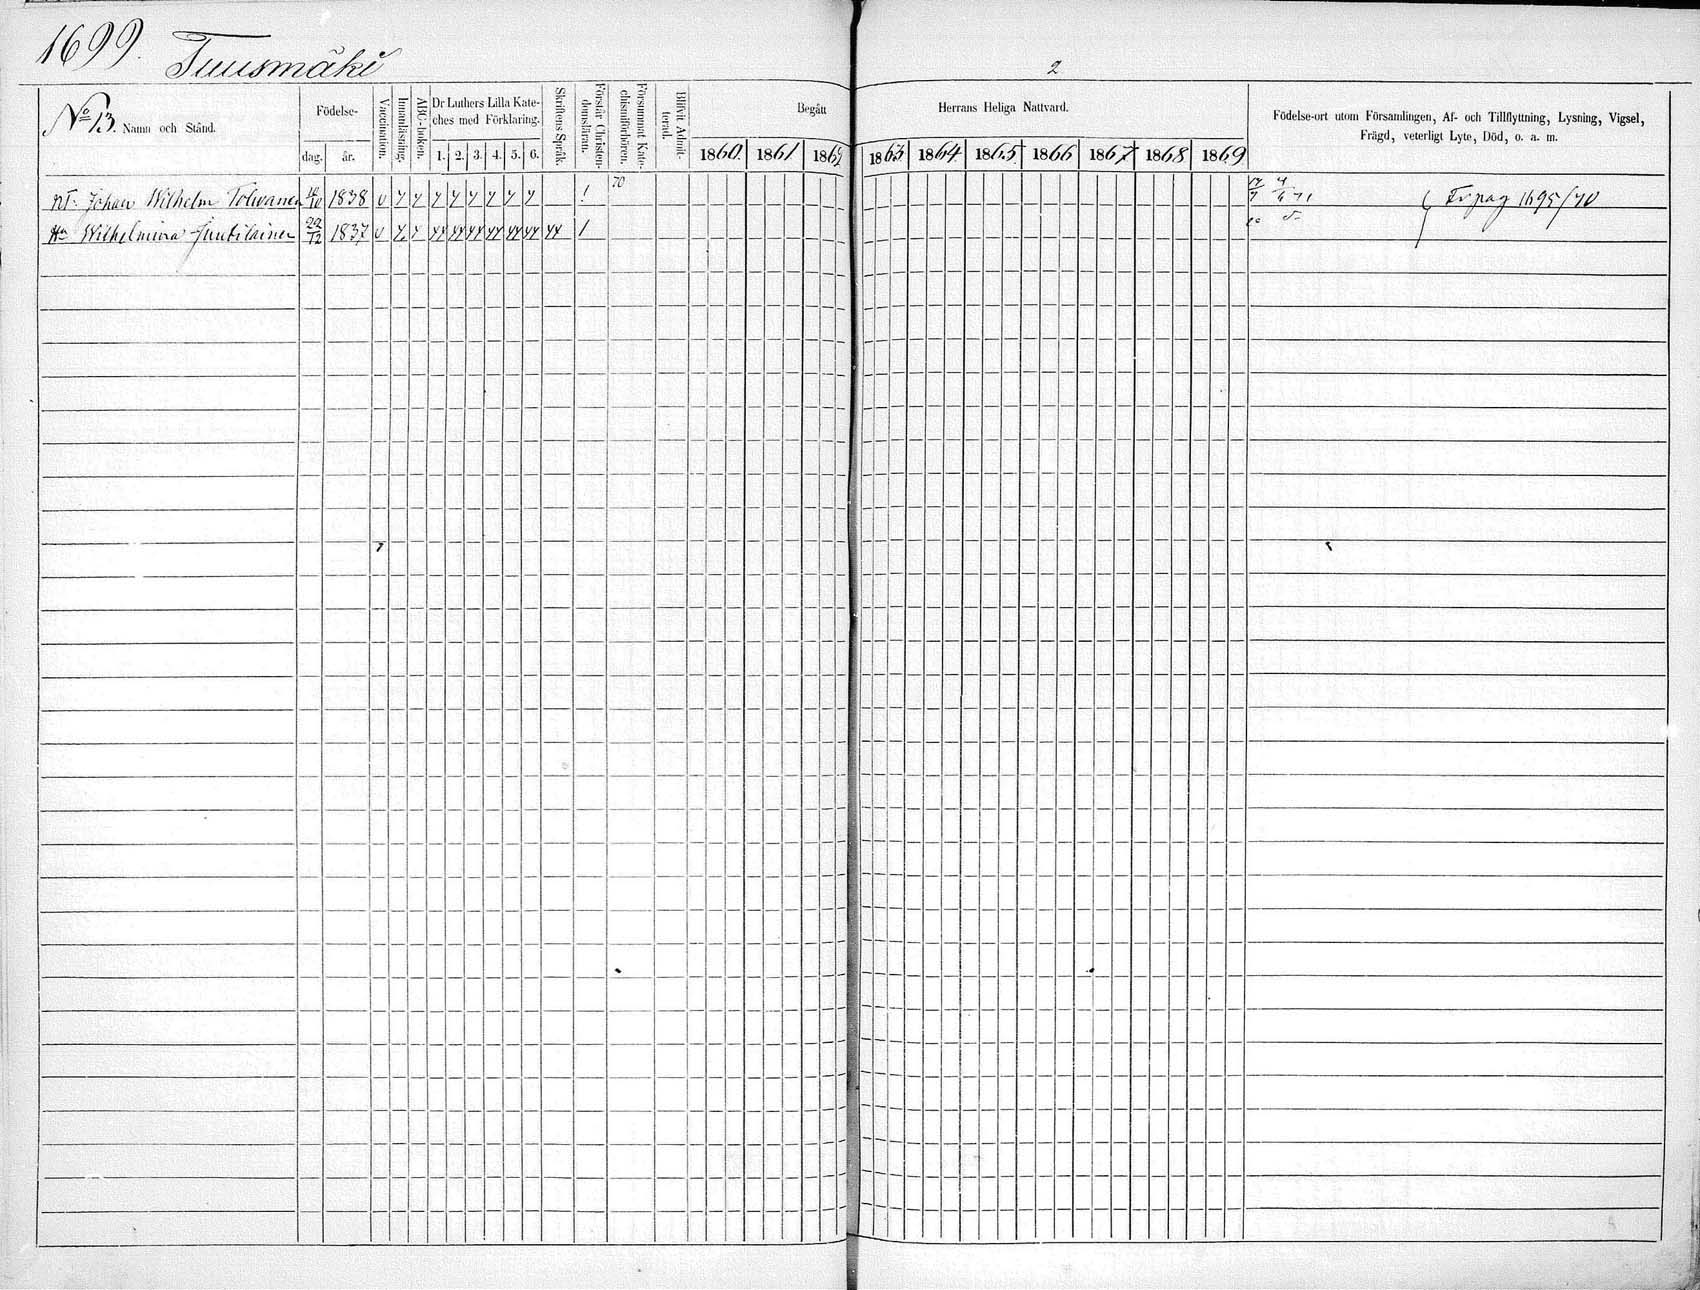 1699. Tuusmäki
2
No 13. Namn och Stånd.
Födelse-
dag. år.
Vaccination.
Innanläsning.
ABC-boken.
Dr Luthers Lilla Kate-
ches med Förklaring.
1. 2. 3. 4. 5. 6.
Skriftens Språk.
Förstår Christen-
domsläran.
Försummat Kate-
chismiförhören.
Blifvit Admit-
terad.
Begått Herrans Heliga Nattvard.
1860. 1861 1862 1863 1864 1865 1866 1867 1868 1869
Födelse-ort utom Församlingen, Af- och Tillflyttning, Lysning, Vigsel,
Frägd, veterligt Lyte, Död, o. a. m.
Johan Wilhelm Tolwanen 1838 70 Fr pag 1695/70
Hu Wilhelmina Juutilainen 29/12 1837